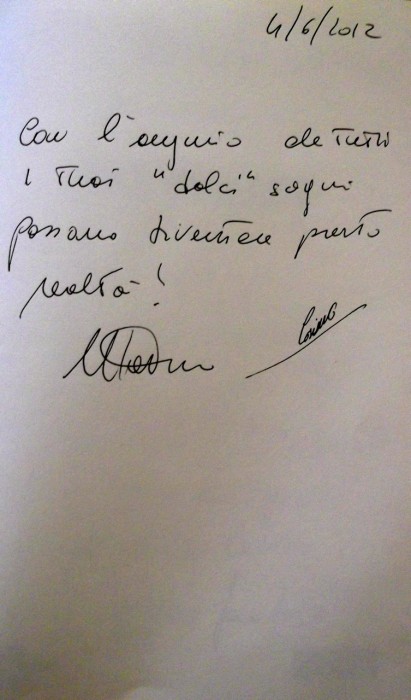 4/6/2012
Con l'augurio che tutti
i tuoi "dolci" sogni
possano divenire presto
realtà!